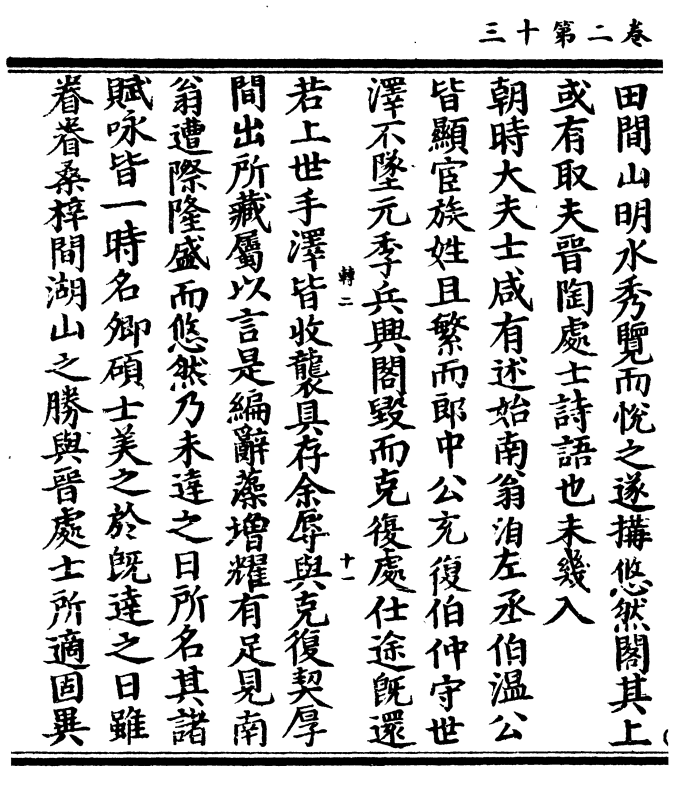 卷二第十三
田間山明水秀覽而悅之遂搆悠然閣其上
或有取夫晉陶處士詩語也未幾入
朝時大夫士咸有述始南翁洎左丞伯溫公
皆顯宦族姓且繁而郎中公充復伯仲守世
澤不墜元季兵興閣毀而克復處仕途旣還
轉二
十一
若上世手澤皆收襲具存余辱與克復契厚
間出所藏屬以言是編辭藻增耀有足見南
翁遭際隆盛而悠然乃未達之日所名其諸
賦咏皆一時名卿碩士美之於旣達之日雖
眷眷桑梓間湖山之勝與晉處士所適固異